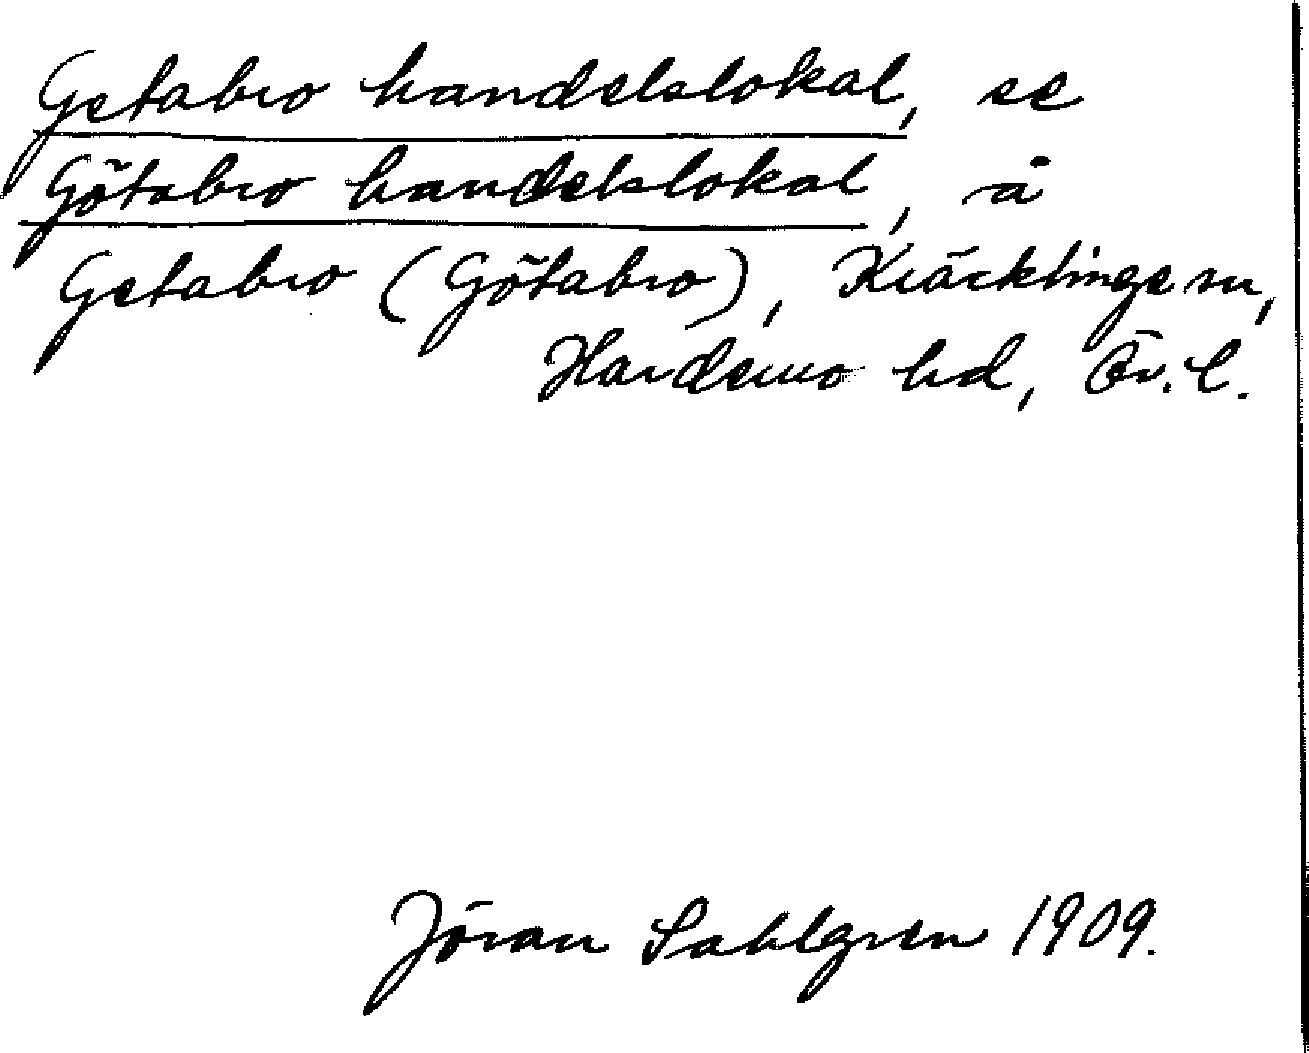 Getabro handelslokal, se
Götabro handelslokal, å
Getabro (Götabro), Kräcklinge sn,
Hardemo hd, Ör. l.
Jöran Sahlgren 1909.